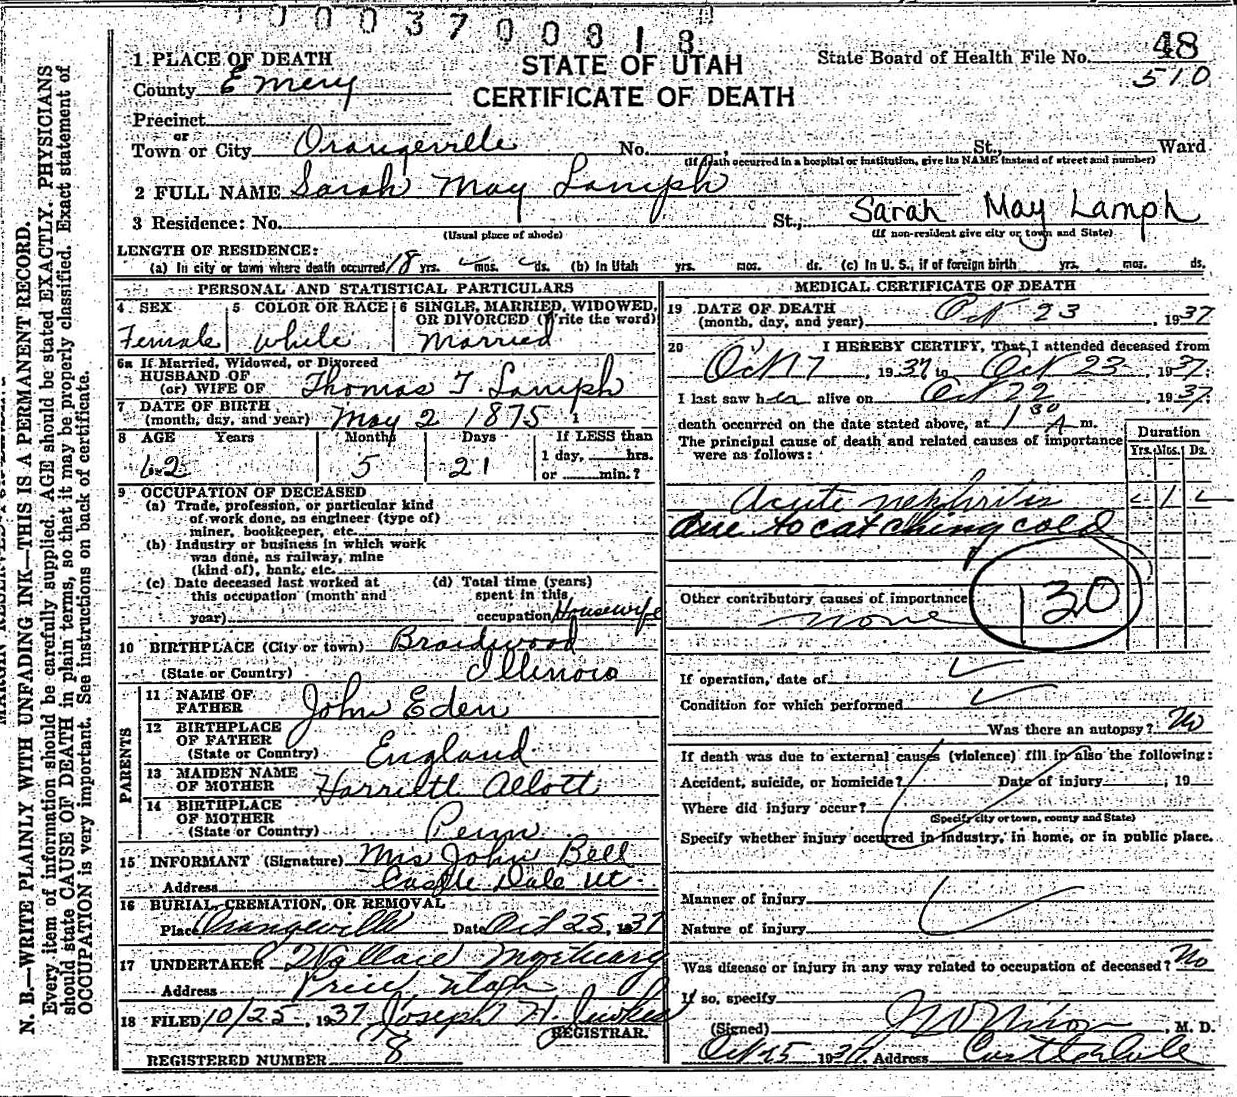 0003700818
STATE OF UTAH
CERTIFICATE OF DEATH
State Board of Health File No. 48
510
1 PLACE OF DEATH
County Emery
Precinct
or
Town or City Orangeville No. , St., Ward
(If death occurred in a hospital or institution, give its NAME instead of street and number)
2 FULL NAME Sarah May Lamph
3 Residence: No. St., Sarah May Lamph
(Usual place of abode) (If non-resident give city or town and State)
LENGTH OF RESIDENCE:
(a) In city or town where death occurred 18 yrs. mos. ds. (b) In Utah yrs. mos. ds. (c) In U. S., if of foreign birth yrs. mos. ds.
PERSONAL AND STATISTICAL PARTICULARS
4 SEX Female
5 COLOR OR RACE White
6 SINGLE, MARRIED, WIDOWED, OR DIVORCED (Write the word) Married
6a If Married, Widowed, or Divorced
HUSBAND OF
(or) WIFE OF Thomas T. Lamph
7 DATE OF BIRTH
(month, day, and year) May 2 1875
8 AGE Years Months Days If LESS than
62 5 21 1 day, hrs.
or min.?
9 OCCUPATION OF DECEASED
(a) Trade, profession, or particular kind
of work done, as engineer (type of)
miner, bookkeeper, etc.
(b) Industry or business in which work
was done, as railway, mine
(kind of), bank, etc.
(c) Date deceased last worked at
this occupation (month and
year)
(d) Total time (years)
spent in this
occupation Housewife
10 BIRTHPLACE (City or town) Braidwood
(State or Country) Illinois
PARENTS
11 NAME OF
FATHER John Eden
12 BIRTHPLACE
OF FATHER
(State or Country) England
13 MAIDEN NAME
OF MOTHER Harriett Allott
14 BIRTHPLACE
OF MOTHER
(State or Country) Penn
15 INFORMANT (Signature) Mrs John Bell
Address Castle Dale Ut.
16 BURIAL, CREMATION, OR REMOVAL
Place Orangeville Date Oct 25, 1937
17 UNDERTAKER Wallace Mortuary
Address Price Utah
18 FILED 10/25, 1937 Joseph H.
REGISTRAR.
REGISTERED NUMBER 8
MEDICAL CERTIFICATE OF DEATH
19 DATE OF DEATH
(month, day, and year) Oct 23, 1937
20 I HEREBY CERTIFY, That I attended deceased from
Oct 17, 1937 to Oct 23, 1937.
I last saw her alive on Oct 22, 1937.
death occurred on the date stated above, at 1 30 A m.
The principal cause of death and related causes of importance
were as follows:
Duration
Yrs. Mos. Ds.
Acute nephritis 1
due to catching cold
130
Other contributory causes of importance
none
If operation, date of
Condition for which performed
Was there an autopsy? No
If death was due to external causes (violence) fill in also the following:
Accident, suicide, or homicide? Date of injury , 19
Where did injury occur?
(Specify city or town, county and State)
Specify whether injury occurred in industry, in home, or in public place.
Manner of injury
Nature of injury
Was disease or injury in any way related to occupation of deceased? No
If so, specify
(Signed) , M. D.
Oct 25 1937 Address Castledale
N. B.—WRITE PLAINLY WITH UNFADING INK—THIS IS A PERMANENT RECORD.
Every item of information should be carefully supplied. AGE should be stated EXACTLY. PHYSICIANS
should state CAUSE OF DEATH in plain terms, so that it may be properly classified. Exact statement of
OCCUPATION is very important. See instructions on back of certificate.